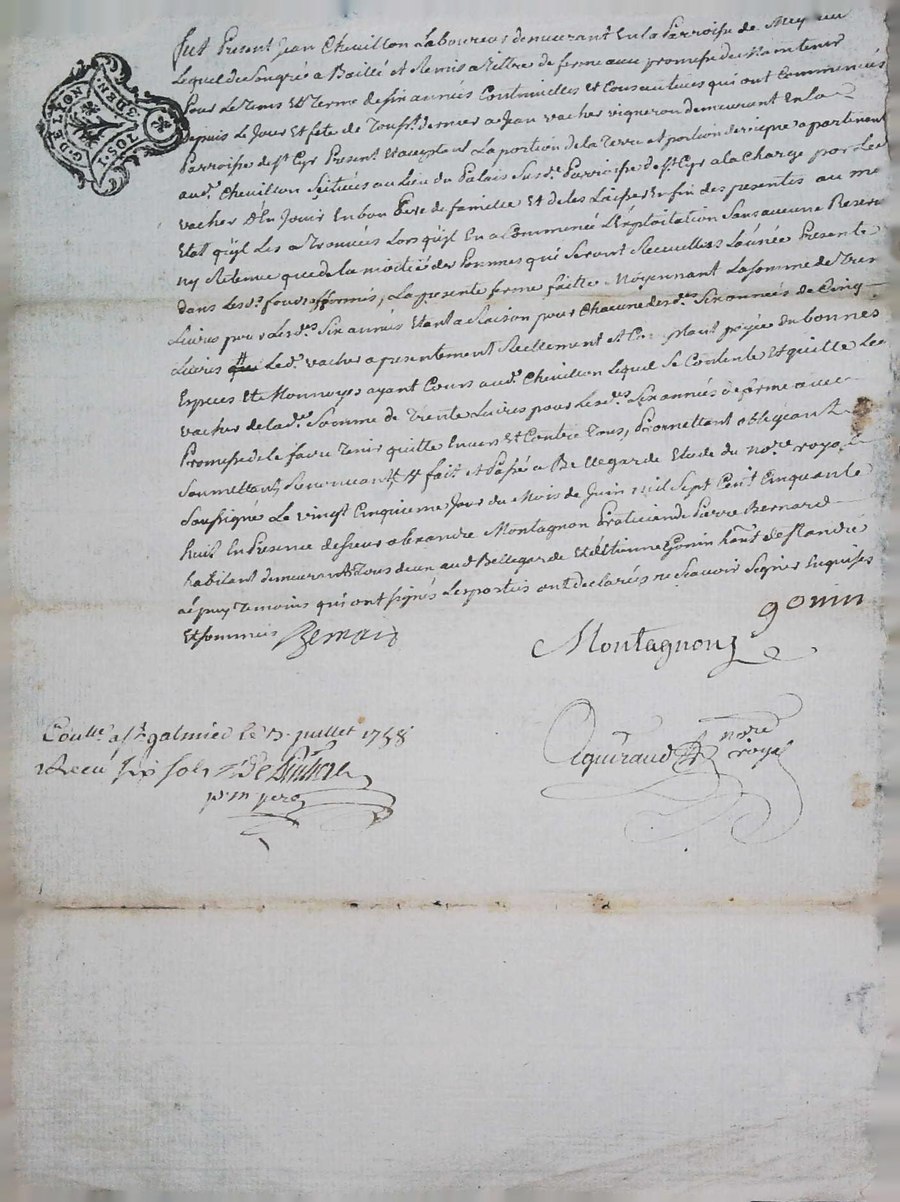 G. DE LYON
3 DEN
fut Present Jean Chevillon Laboureur demeurant En la Parroisse de
Lequel de Son gré a Baillé et Remis a Tiltre de ferme avec promesse de Maintenir
Pour Le tems Et Terme de Six années Continuelles et Consecutives qui ont Commencés
depuis Le Jour Et fête de Touss.ts dernier a Jean vacher vigneron demeurant En la
Parroisse de S.t Cyr Present Et acceptant La portion de la Terre et portion de vigne apartenant
aud.t Chevillon Scituées au Lieu du Palais Susd.e Parroisse de S.t Cyr a la Charge par Led.
vacher d'En Jouir En bon Pere de famille Et de les Laisser En fin des presentes au me
Etat qu'il Les a Trouvées Lors qu'il En a Commencé L'exploitation Sans aucune Reserve
ny Retenue que de la moitié des Pommes qui Seront Recueillies L'année Presente
dans Lesd.s fonds affermés, La presente ferme faitte Moyennant La somme de Tren
Livres pour Lesd.s Six années Etant a Raison pour Chacune desd.es Six années de Cinq
Livres que Led.t vacher a presentement Reellement et Comptant payée En bonnes
Especes Et Monnoyes ayant Cours aud.t Chevillon Lequel Se Contente Et quitte Led
vacher de lad.e Somme de Trente Livres pour Lesd.s Six années de ferme avec
Promesse de le faire Tenir quitte Envers Et Contre Tous, Promettant obligeant
Soumettant Renonceant &. fait et Passé a Bellegarde Etude du no.re royal
Soussigné Le vingt Cinquieme Jour du Mois de Juin mil Sept Cent Cinquante
huit En Presence de Sieur alexandre Montagnon Praticien de Pierre Bernard
habitant demeurants Tous deux aud. Bellegarde Et d'Etienne Gonin hant de St andré
le puy Temoins qui ont signés Les parties ont declarés ne Scavoir Signer Enquises
Et Sommés
Bernard
gonin
Montagnon
Coulle a S.t galmier le 7 juillet 1758
Recu six sols
Aguiraud no.re royal